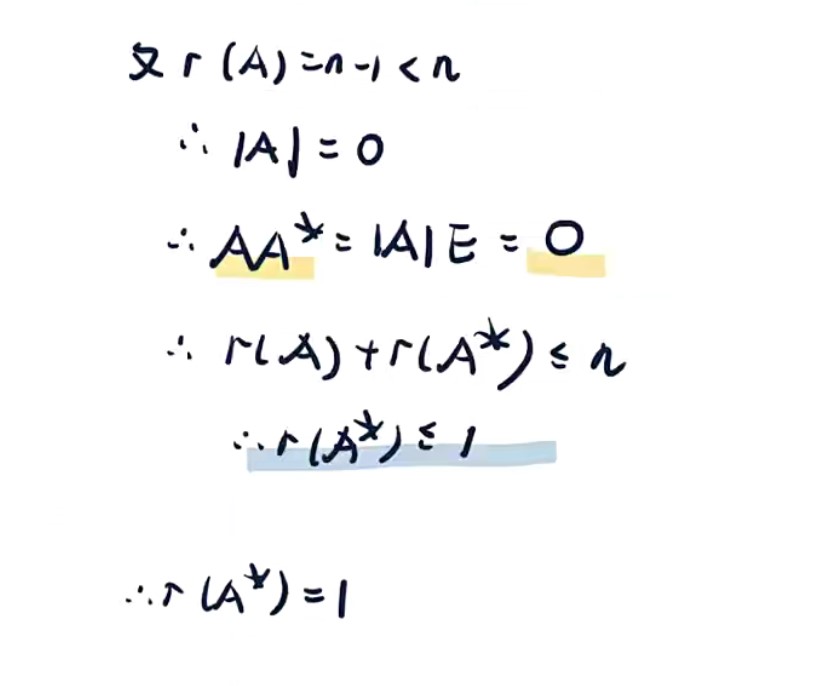 又 r(A)=n-1<n
∴ |A|=0
∴ AA*=|A|E=O
∴ r(A)+r(A*)≤n
∴r(A*)≤1
∴r(A*)=1